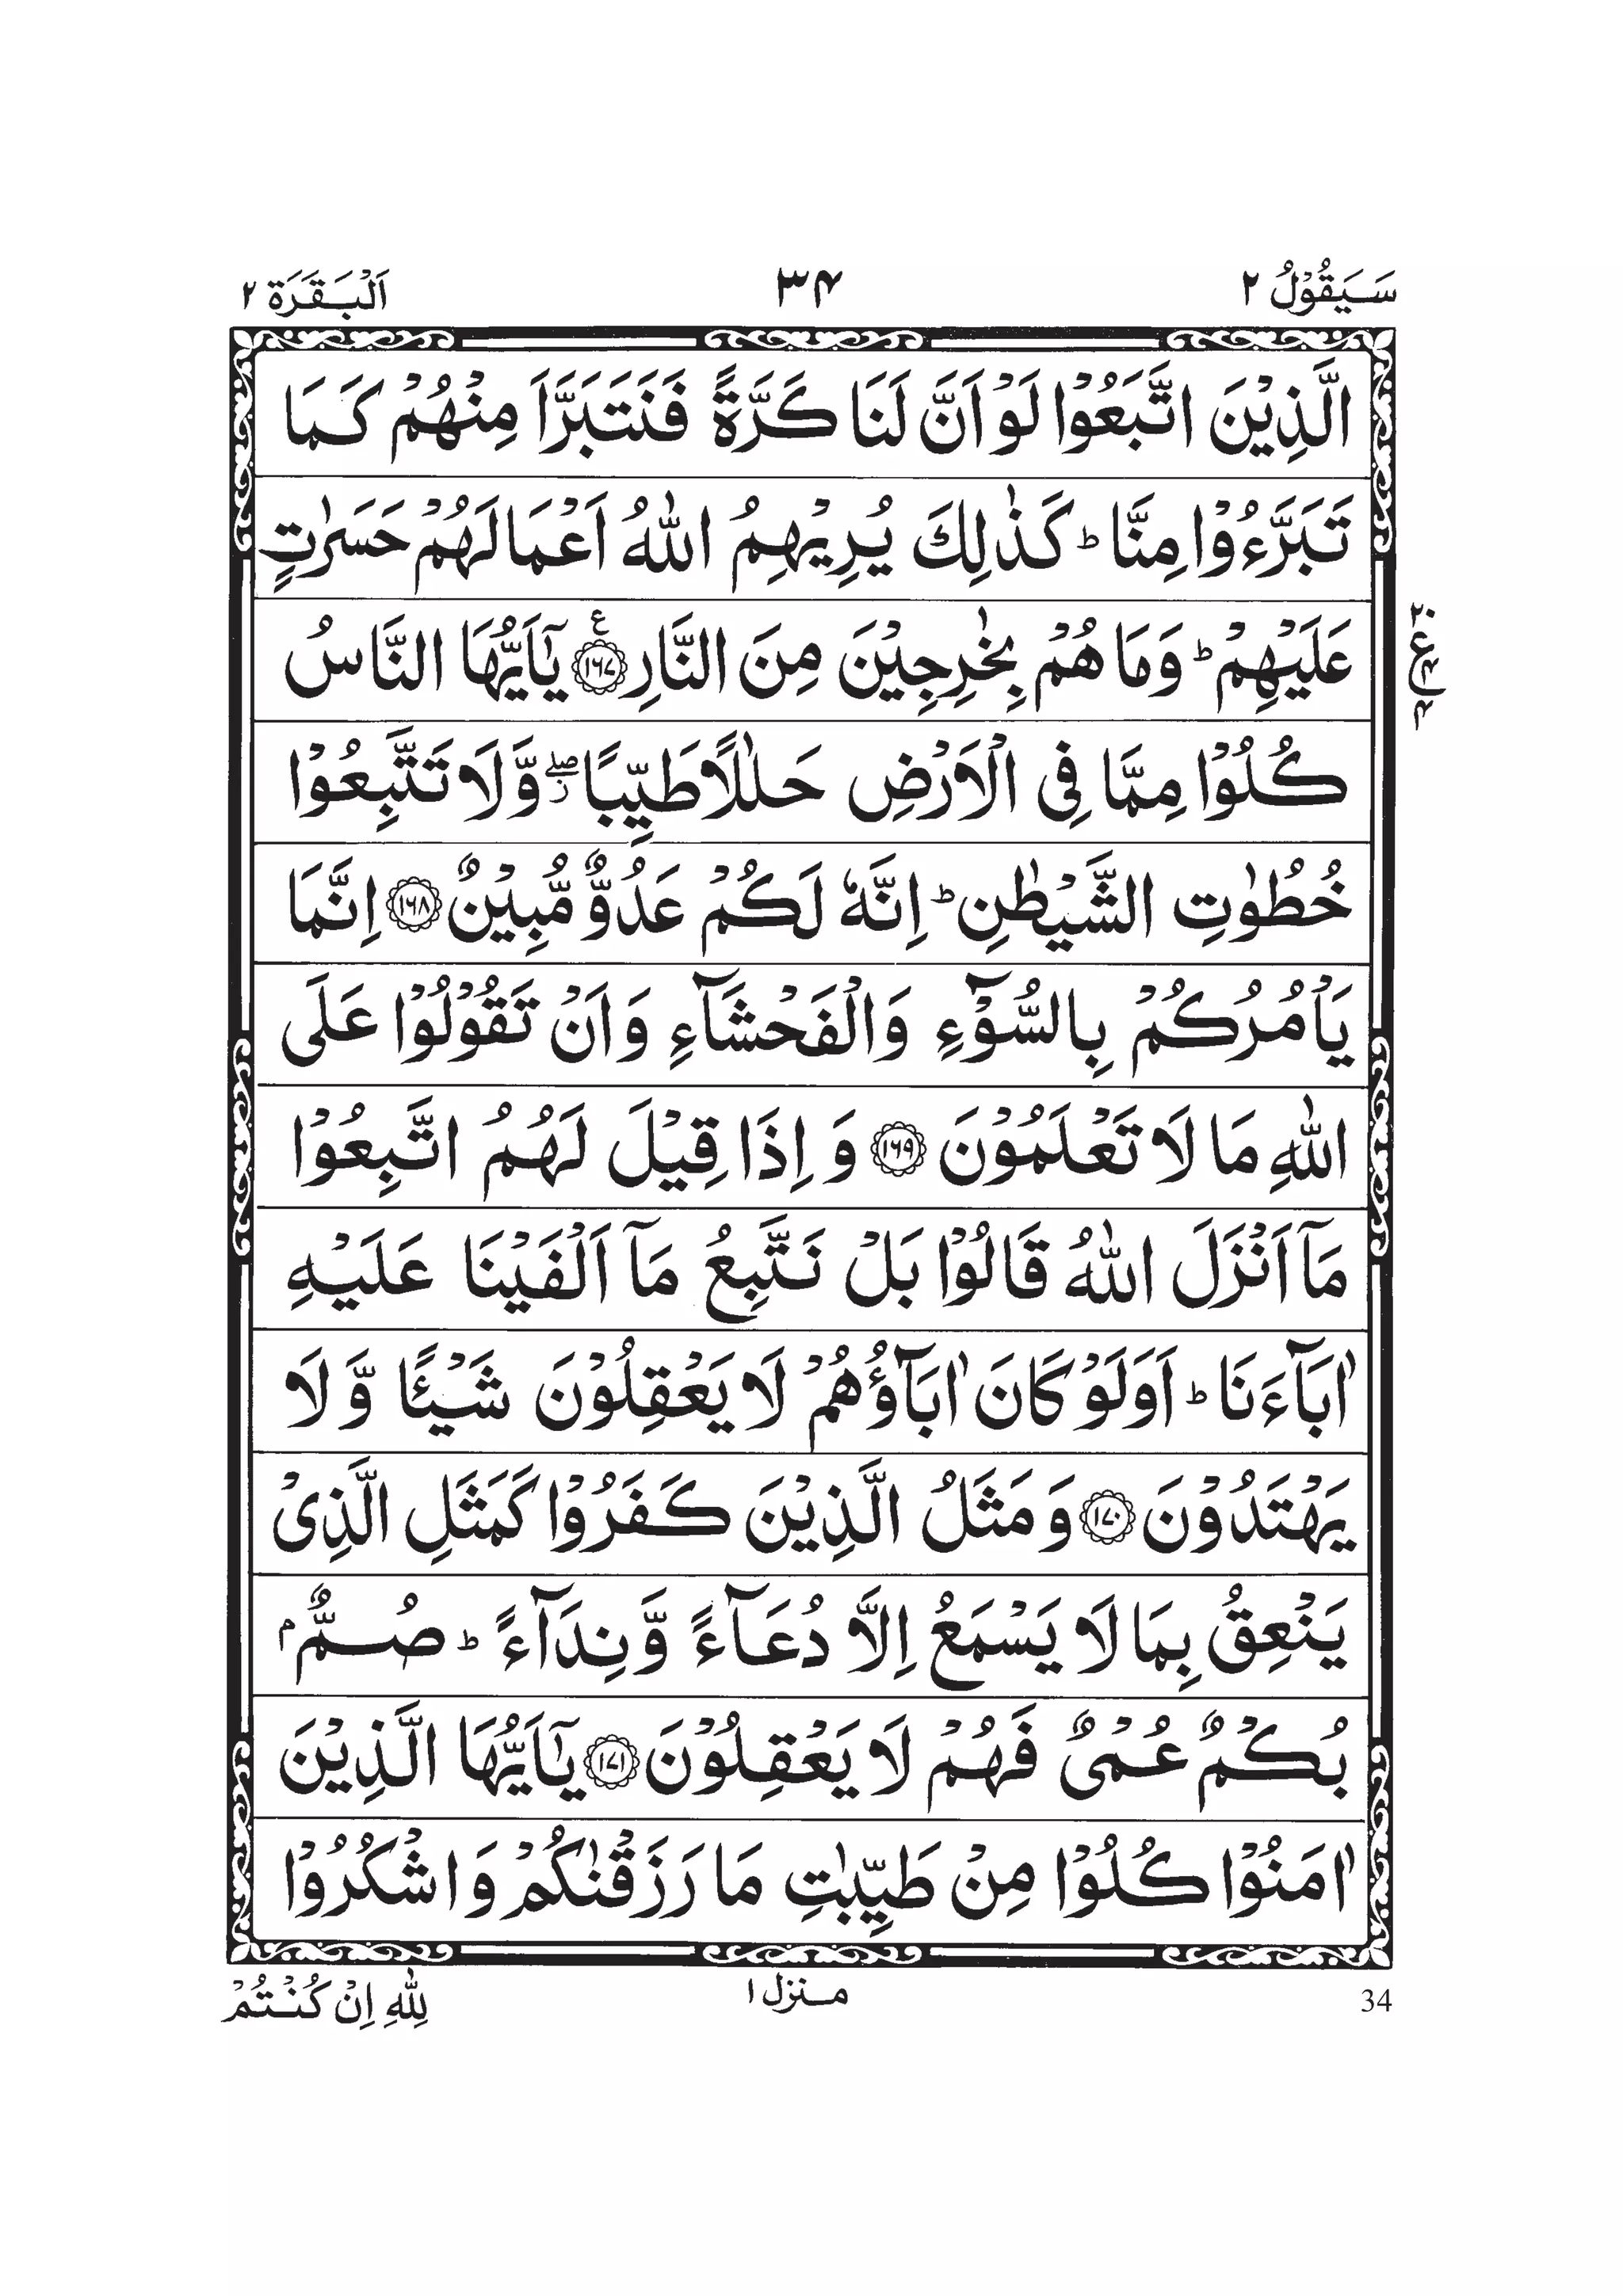 سَيَقُوْلُ ٢
٣۴
اَلْبَقَرَة ٢
الَّذِيْنَ اتَّبَعُوْا لَوْ اَنَّ لَنَا كَرَّةً فَنَتَبَرَّاَ مِنْهُمْ كَمَا
تَبَرَّءُوْا مِنَّا ؕ كَذٰلِكَ يُرِيْهِمُ اللّٰهُ اَعْمَالَهُمْ حَسَرٰتٍ
عَلَيْهِمْ ؕ وَمَا هُمْ بِخٰرِجِيْنَ مِنَ النَّارِ ﴿١٦٧﴾ ع يٰٓاَيُّهَا النَّاسُ
كُلُوْا مِمَّا فِى الْاَرْضِ حَلٰلًا طَيِّبًا ۖ وَّلَا تَتَّبِعُوْا
خُطُوٰتِ الشَّيْطٰنِ ؕ اِنَّهٗ لَكُمْ عَدُوٌّ مُّبِيْنٌ ﴿١٦٨﴾ اِنَّمَا
يَاْمُرُكُمْ بِالسُّوْٓءِ وَالْفَحْشَآءِ وَاَنْ تَقُوْلُوْا عَلَى
اللّٰهِ مَا لَا تَعْلَمُوْنَ ﴿١٦٩﴾ وَ اِذَا قِيْلَ لَهُمُ اتَّبِعُوْا
مَآ اَنْزَلَ اللّٰهُ قَالُوْا بَلْ نَتَّبِعُ مَآ اَلْفَيْنَا عَلَيْهِ
اٰبَآءَنَا ؕ اَوَلَوْ كَانَ اٰبَآؤُهُمْ لَا يَعْقِلُوْنَ شَيْئًا وَّ لَا
يَهْتَدُوْنَ ﴿١٧٠﴾ وَ مَثَلُ الَّذِيْنَ كَفَرُوْا كَمَثَلِ الَّذِىْ
يَنْعِقُ بِمَا لَا يَسْمَعُ اِلَّا دُعَآءً وَّ نِدَآءً ؕ صُمٌّۢ
بُكْمٌ عُمْىٌ فَهُمْ لَا يَعْقِلُوْنَ ﴿١٧١﴾ يٰٓاَيُّهَا الَّذِيْنَ
اٰمَنُوْا كُلُوْا مِنْ طَيِّبٰتِ مَا رَزَقْنٰكُمْ وَ اشْكُرُوْا
34
منزل ١
لِلّٰهِ اِنْ كُنْتُمْ